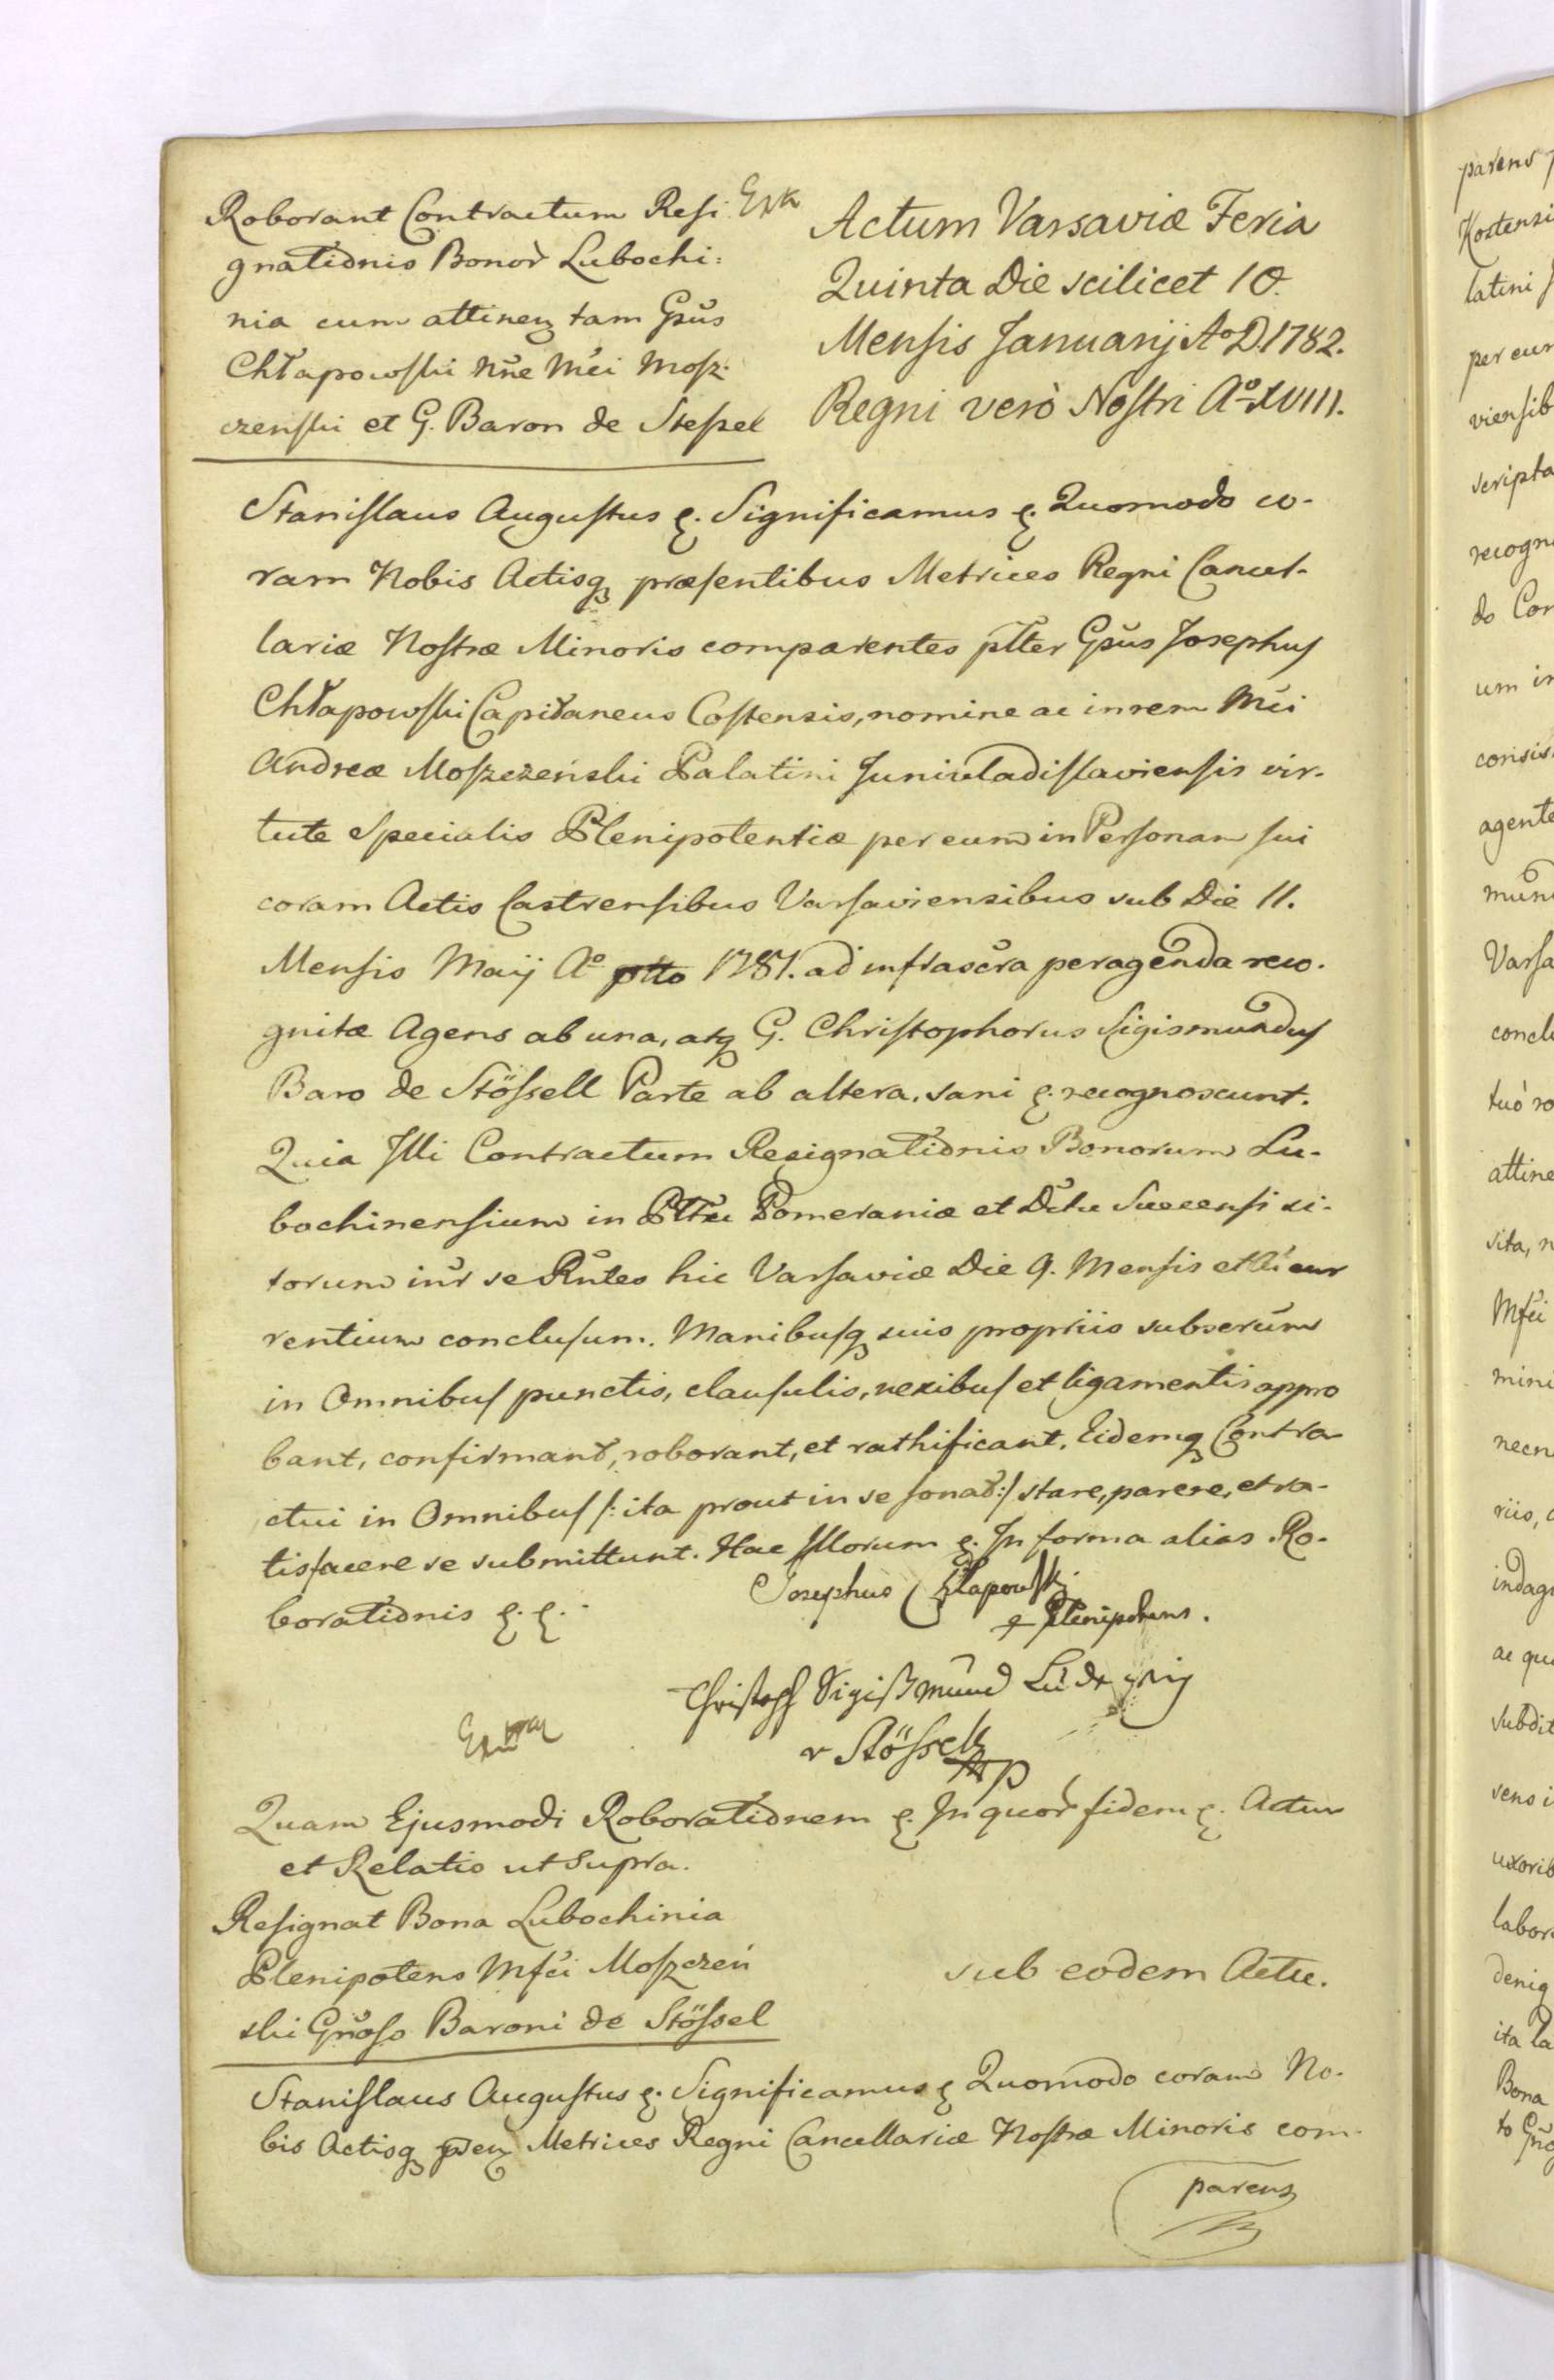 Roborant Contractum Resi
gnatiõnis Bonor̃ Lubochi:
nia cum attinen tam Gsũs
Chłapowski nñe Mci Mosz:
czenski et G. Baron de Stessel
Actum Varsaviæ Feria
Quinta Die scilicet 10.
Mensis Januarij Aº D. 1782.
Regni verò Nostri Aº XVIII.
Stanislaus Augustus &. Significamus &. Quomodo co-
ram Nobis Actisq præsentibus Metrices Regni Cancel-
lariæ Nostræ Minoris comparentes pltter Gsũs Josephus
Chłapowski Capitaneus Costensis, nomine ac in rem Mci
Andreæ Moszczeński Palatini Juniuladislaviensis vir-
tute Specialis Plenipotentiæ per eum in Personam sui
coram Actis Castrensibus Varsaviensibus sub Die 11.
Mensis Maij Aº 1781. ad infrascra peragenda reco-
gnitæ Agens ab una, atq G. Christophorus Sigismundus
Baro de Stössell Parte ab altera. sani &. recognoscunt.
Quia Illi Contractum Resignatiõnis Bonorum Lu-
bochinensium in Pltu Pomeraniæ et Dctu Suecensi si-
torum intr se Rñtes hic Varsaviæ Die 9. Mensis et Ai cur
rentium conclusum. Manibusq suis propriis subscrum
in Omnibus punctis, clausulis, nexibus et ligamentis appro
bant, confirmant, roborant, et rathificant. Eidemq Contra
ctui in Omnibus /: ita prout in se sonat :/ stare, parere, et sa-
tisfacere se submittunt. Hac Illorum &. In forma alias Ro-
boratiõnis &. &.
Josephus Chłapowski
Plenipotens.
Christoph Sigißmund Ludewig
v Stössell
mp
Quam Ejusmodi Roboratiõnem &. In quor̃ fidem &. Actum
et Relatio ut Supra.
Resignat Bona Lubochinia
Plenipotens Mfci Moszczeń
ski Gñoso Baroni de Stössel
sub eodem Actu.
Stanislaus Augustus &. Significamus & Quomodo coram No-
bis Actisq psen Metrices Regni Cancellariæ Nostræ Minoris com-
parens